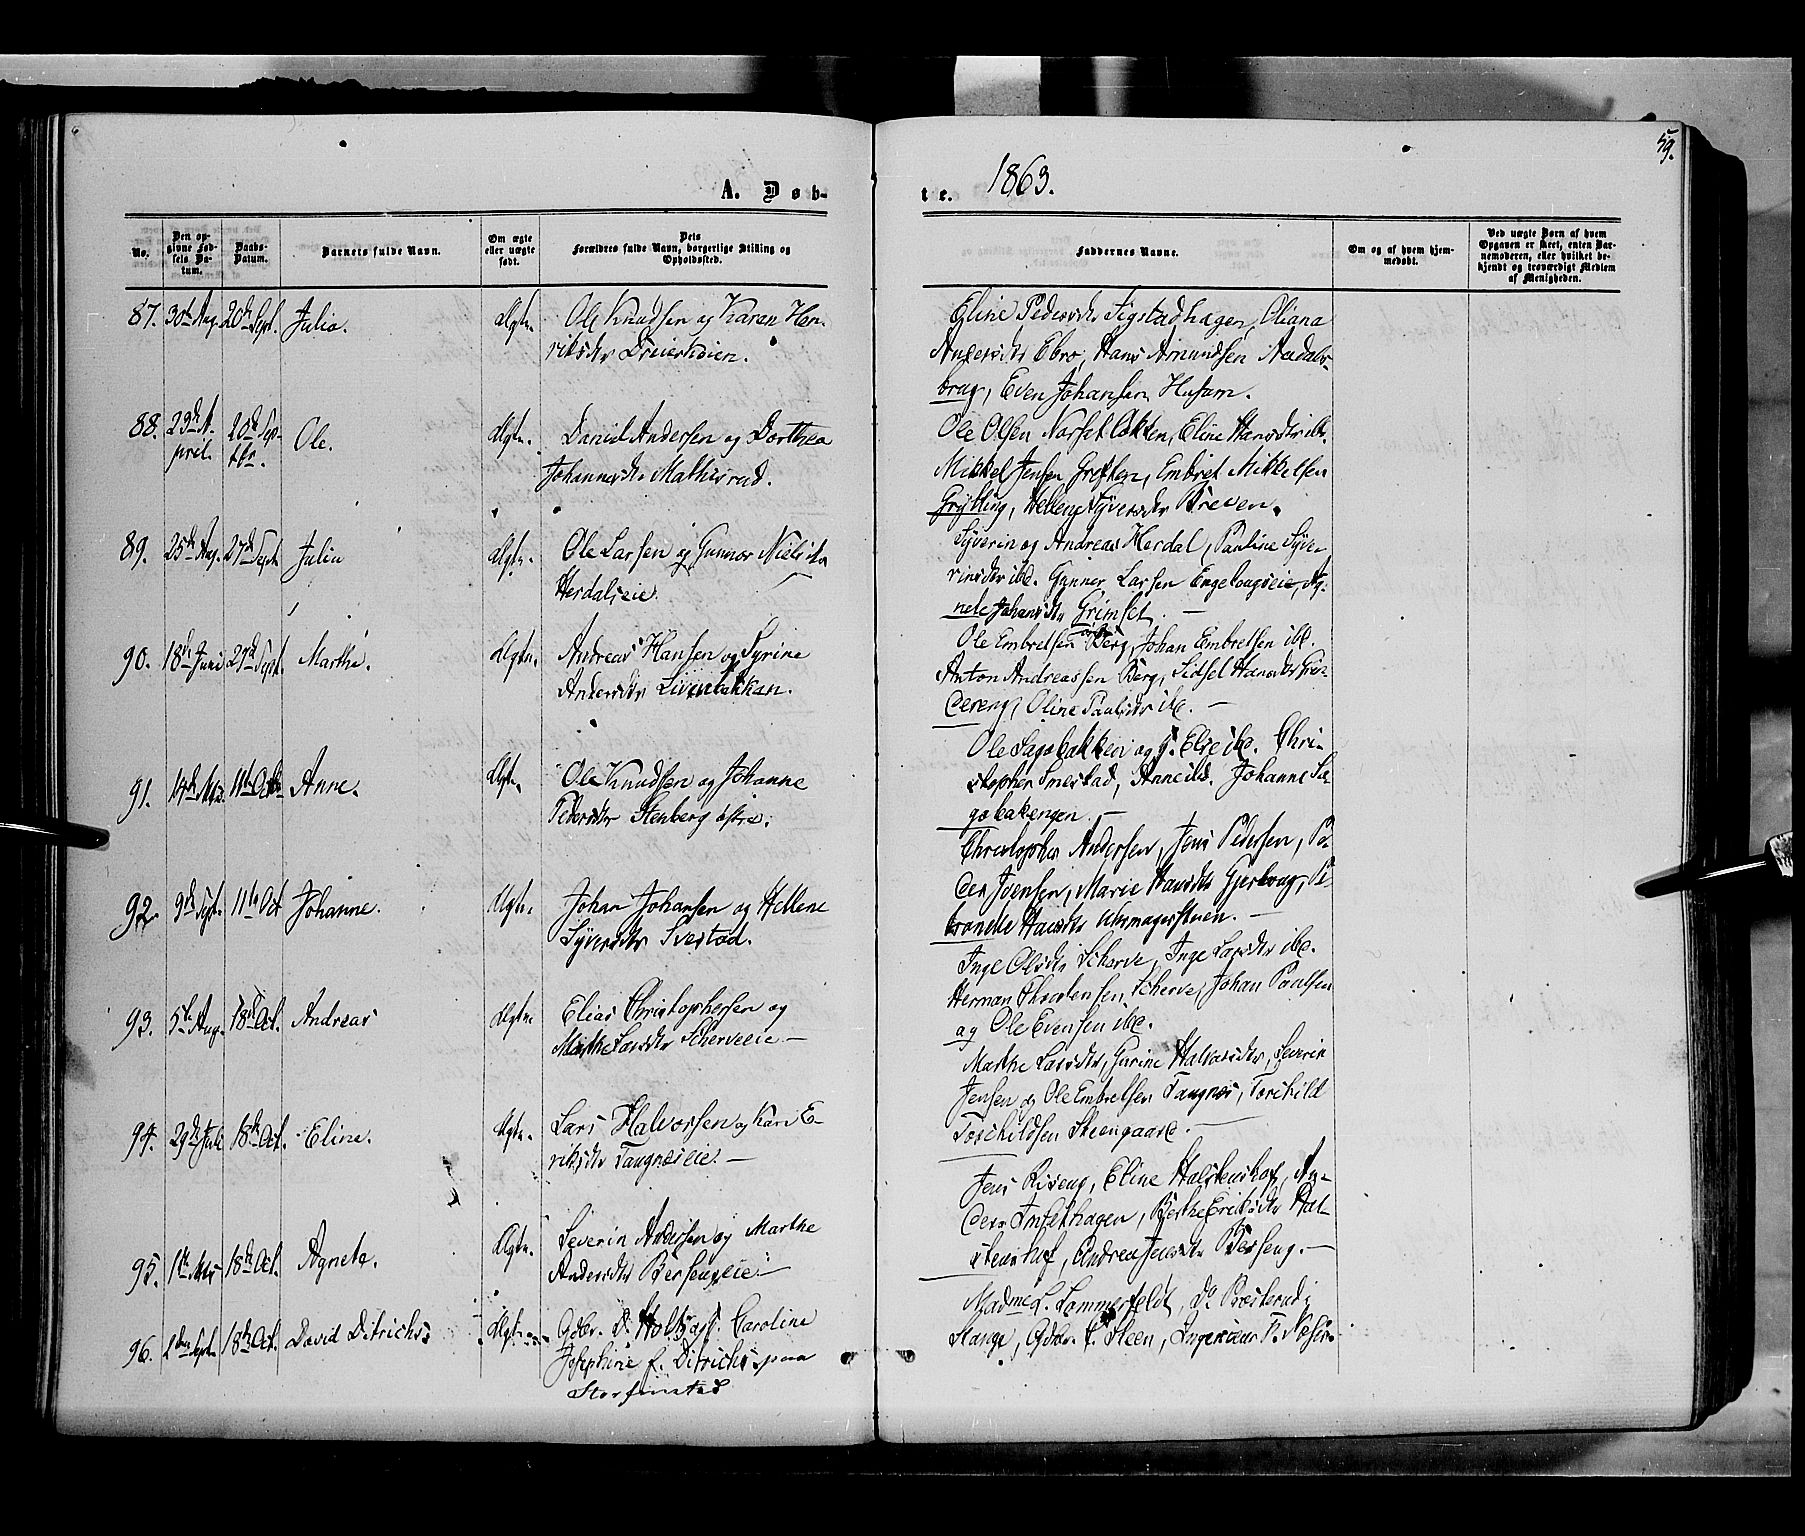 59.
1863.
A. Døb-
te.
No.
Den op-
givne Fød-
sels Da-
tum.
Daabs-
Datum.
Barnets fulde Navn.
Om ægte
eller uægte
født.
Dets
Forældres fulde Navn, borgerlige Stilling og
Opholdssted.
Faddernes Navne.
Om og af hvem hjem-
medøbt.
Ved uægte Børn af hvem
Opgaven er skeet, enten Bar-
nemoderen, eller hvilket be-
kjendt og troværdigt Medlem
af Menigheden.
87. 30te Aug. 20de Sept. Julia. Ægte. Ole Knudsen og Karen Hen-
riksdr
Eline Pedersdr Sigstadhagen, Oliana
Andersdr Ebro, Hans Amundsen Aadals-
brug, Even Johansen Husom.
88. 23de A-
pril. 20de Sep-
tbr. Ole. Ægte. Daniel Andersen og Dorthea
Johannesdr Mathisrud.
Ole Olsen Norsetløkken, Eline Hansdr ibd.
Mikkel Jensen Greften, Embret Mikkelsen
Grytting, Hellene Syversdr Breven.
89. 25de Aug. 27de Sept. Julia Ægte. Ole Larsen og Gunnor Nielsdr
Herdalseie.
Syverin og Andreas Herdal, Pauline Syve-
rinsdr ibd. Gunner Larsen Engelaugseie, Ag-
nete Johansdr Grimset.
90. 18de Juni 27de Sept. Marthe. Ægte. Andreas Hansen og Syrine
Andersdr
Ole Embretsen Berg, Johan Embretsen ibd.
Anton Andreassen Berg, Sidsel Hansdr Grøn-
dereng, Oline Paulsdr ibd.
91. 14de Mai 11te Octb. Anne. Ægte. Ole Knudsen og Johanne
Pedersdr Stenberg østre.
Ole Sagabakken og G. Else ibd. Chri-
stopher Smestad, Anne ibd. Johanne Sa-
gabakengen.
92. 9de Sept. 11te Oct. Johanne. Ægte. Johan Johansen og Hellene
Syversdr Svestad.
Christopher Andersen, Jens Pedersen, Pe-
der Jensen, Marie Hansdr Gjerlaug, Pe-
tronelle Hansdr Uhrmagerstuen.
93. 5te Aug. 18de Oct. Andreas Ægte Elias Christophersen og
Marthe Larsdr Scherveeie
Inge Olsdr Scherve, Inge Larsdr ibd.
Herman Thorstensen Scherve, Johan Paulsen
og Ole Evensen ibd.
94. 29de Juli 18de Oct. Eline. Ægte. Lars Halvorsen og Kari E-
riksdr Taugnæseie.
Marthe Larsdr, Gurine Halvorsdr, Severin
Jensen og Ole Embretsen Taugnæs, Torchild
Torchildsen Steengaard.
95. 1te Mai 18de Oct. Agnete. Ægte. Severin Andersen og Marthe
Andersdr Bersengeie
Jens Riseng, Eline Halstenshof, An-
ders Imsethagen, Berthe Eriksdr Hal-
stenshof, Andrea Jensdr Berseng.
96. 2den Sept. 18de Oct. David Ditrichs Ægte Gdbr. D. Holtz og Caroline
Josephine f. Ditrichs paa
Storfinstad
Madme L. Lommerfeldt, Do Præsterud i
Stange, Gdbr. Steen, Ingenieur